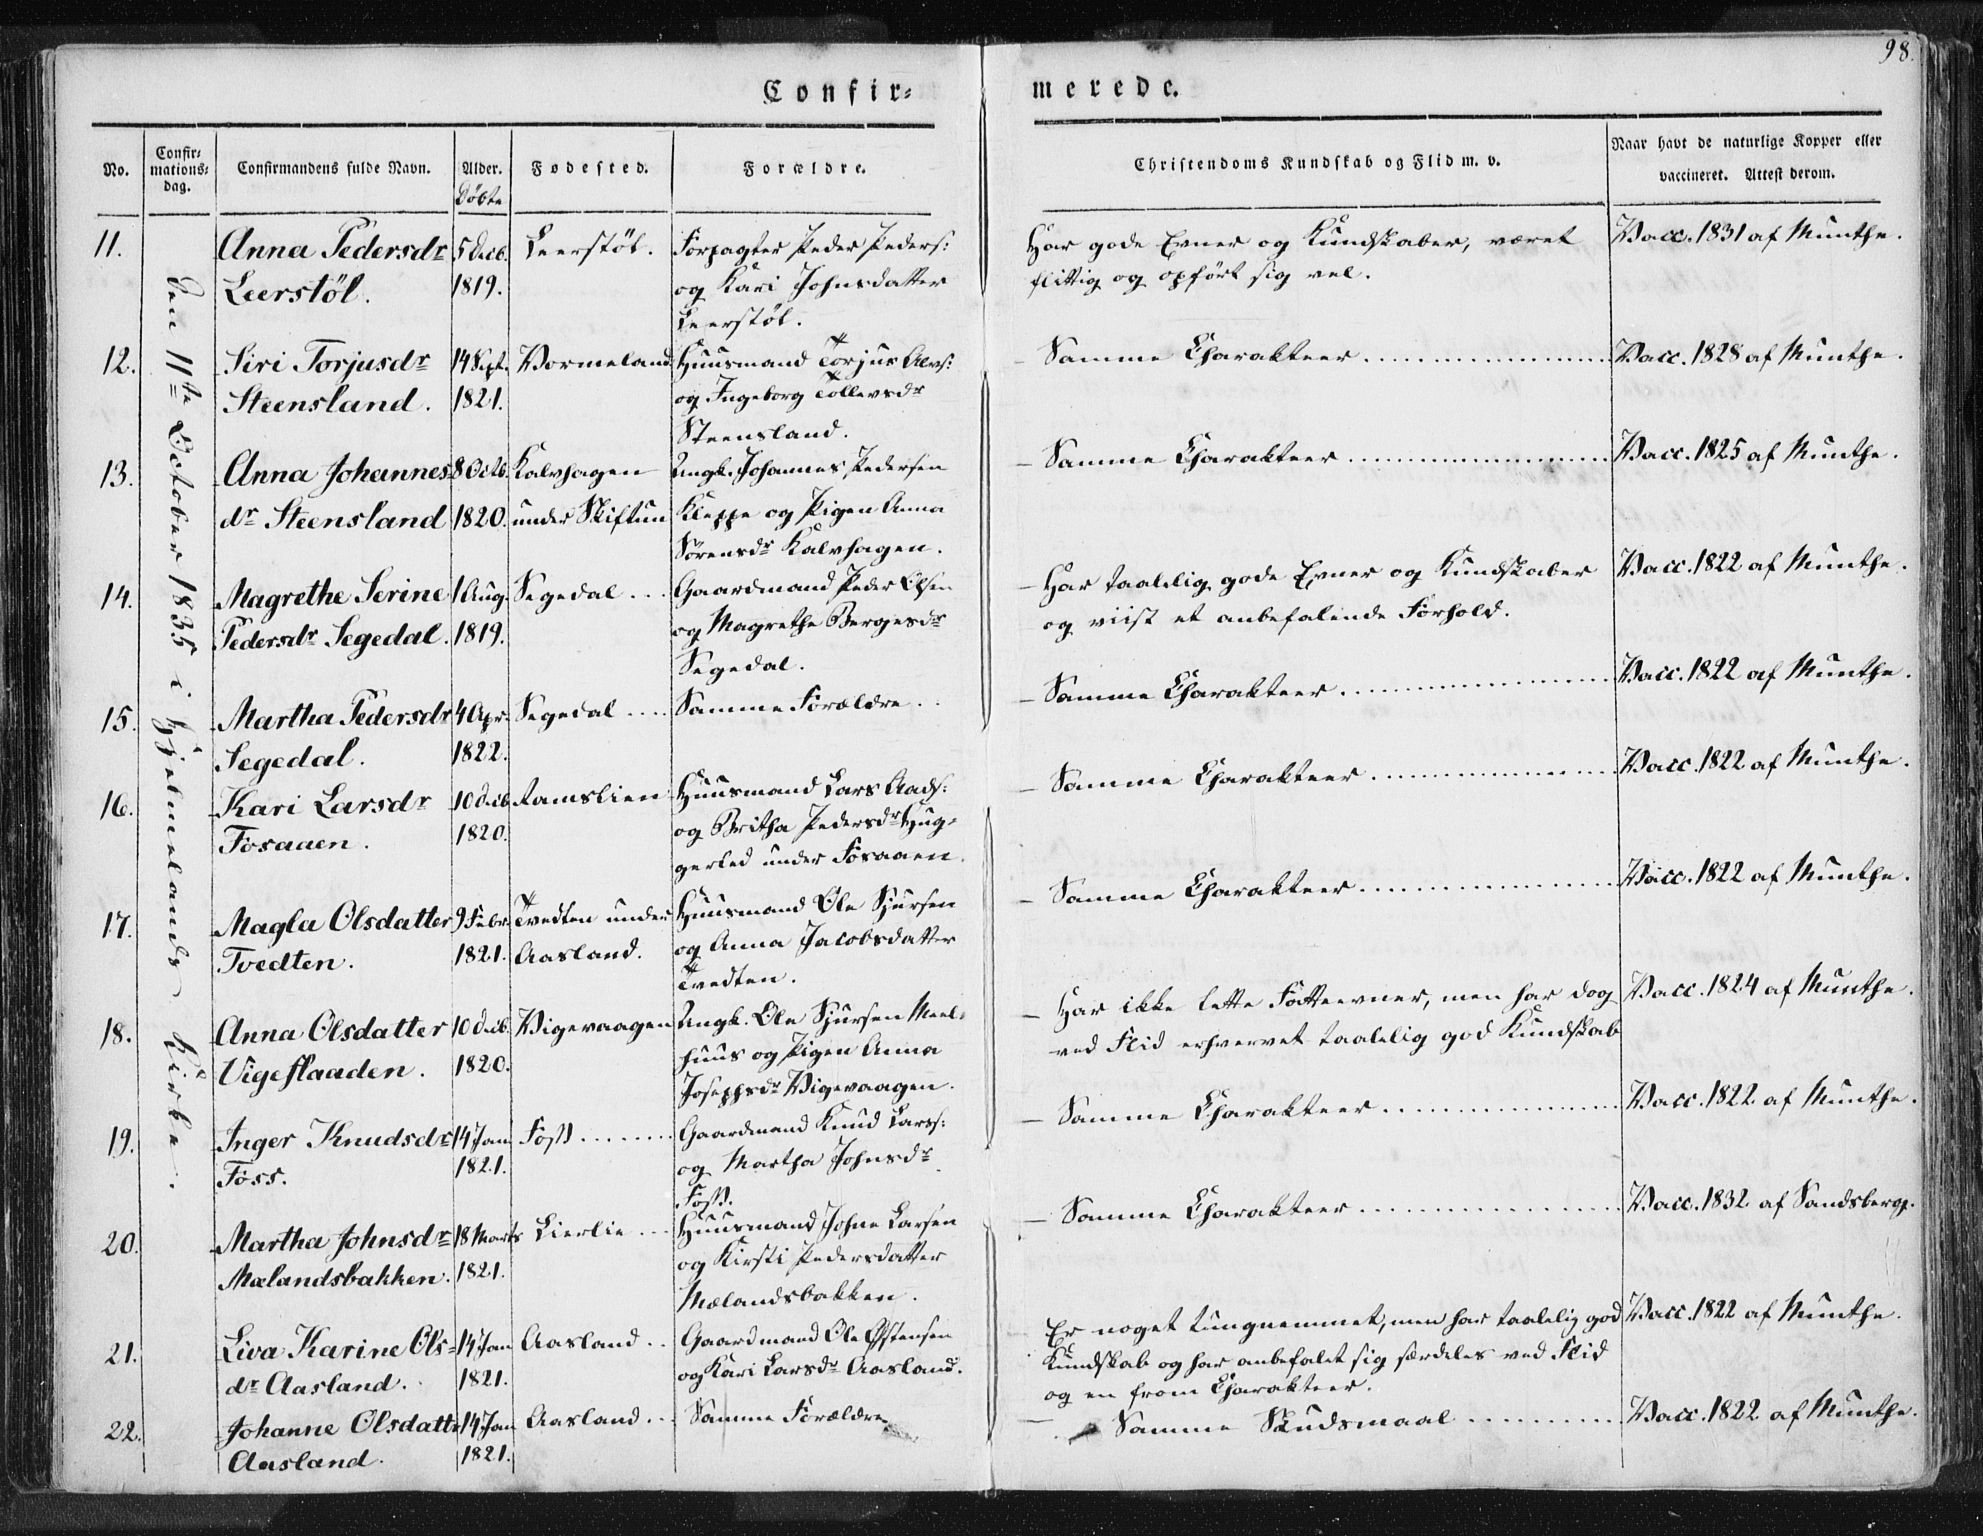 98.
Confir=
merede.
No.
Confir=
mations=
dag.
Confirmandens fulde Navn.
Alder.
Døbte
Fødested.
Forældre.
Christendoms Kundskab og Flid m. v.
Naar havt de naturlige Kopper eller
vaccineret. Attest derom.
Den 11te October 1835 i Hjelmelands Kirke.
11. Anna Pedersdr 5 Decb. Leerstöl. Forpagter Peder Peders: Har gode Evner og Kundskaber, været Vacc. 1831 af Munthe.
Leerstöl. 1819. og Kari Johnsdatter flittig og opført sig vel.
Leerstöl.
12. Siri Torjusdr 14 Sept. Vormeland Huusmand Torjus Alvs: Samme Charakteer Vacc. 1828 af Munthe.
Steensland. 1821. og Ingeborg Tollevsdr
Steensland.
13. Anna Johannes 8 Octb. Kalvhagen Ungk. Johannes Pedersen Samme Charakteer Vacc. 1825 af Munthe.
dr Steensland 1820. under Skiftun Kleppe og Pigen Anna
Sørensdr Kalvhagen.
14. Magrethe Serine 1 Aug. Segedal Gaardmand Peder Olsen Har taalelig gode Evner og Kundskaber Vacc. 1822 af Munthe.
Pedersdr Segedal. 1819. og Magrethe Bergesdr og viist et anbefalende Forhold.
Segedal.
15. Martha Pedersdr 4 Apr. Segedal Samme Forældre Samme Charakteer Vacc. 1822 af Munthe.
Segedal. 1822.
16. Kari Larsdr 10 Decb. Ramslien Huusmand Lars Aads: Samme Charakteer Vacc. 1822 af Munthe.
Fosaaen. 1820. og Britha Pedersdr Hug=
gerled under Fosaaen.
17. Magla Olsdatter 9 Febr. Tvedten under Huusmand Ole Sjursen Samme Charakteer Vacc. 1822 af Munthe.
Tvedten. 1821. Aasland. og Anna Jacobsdatter
Tvedten.
18. Anna Olsdatter 10 Decb. Vigevaagen Ungk. Ole Sjursen Meel= Har ikke lette Fatteevner, men har dog Vacc. 1824 af Munthe.
Vigeflaaden. 1820. huus og Pigen Anna ved Flid erhvervet taalelig god Kundskab
Josephsdr Vigevaagen.
19. Inger Knudsdr 14 Jan. Foss Gaardmand Knud Larss: Samme Charakteer Vacc. 1822 af Munthe.
Foss. 1821. og Martha Johnsdr
Foss.
20. Martha Johnsdr 18 Marts Lierlie Huusmand Johne Larsen Samme Charakteer Vacc. 1832 af Sandsberg.
Mælandsbakken. 1821. og Kirsti Pedersdatter
Mælandsbakken.
21. Liva Karine Ols= 14 Jan Aasland Gaardmand Ole Østensen Er noget tungnemmet, men har taalelig god Vacc. 1822 af Munthe.
dr Aasland. 1821. og Kari Larsdr Aasland. Kundskab og har anbefalet sig særdeles ved Flid
og en from Charakteer.
22. Johanne Olsdatter 14 Jan Aasland Samme Forældre Samme Skudsmaal Vacc. 1822 af Munthe.
Aasland. 1821.